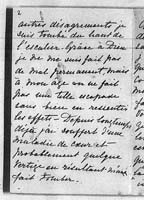 2
autres désagrements je
suis tombé du haut de
l'escalier. Grâce à Dieu
je ne me suis fait pas
de mal permanent, mais
à mon âge on ne fait
pas une telle escapade
sans bien en ressentir
les effets. Depuis longtemps
déjà j'ai souffert d'une
maladie de cœur et
probablement quelque
vertige en résultant m'a
fait tomber.